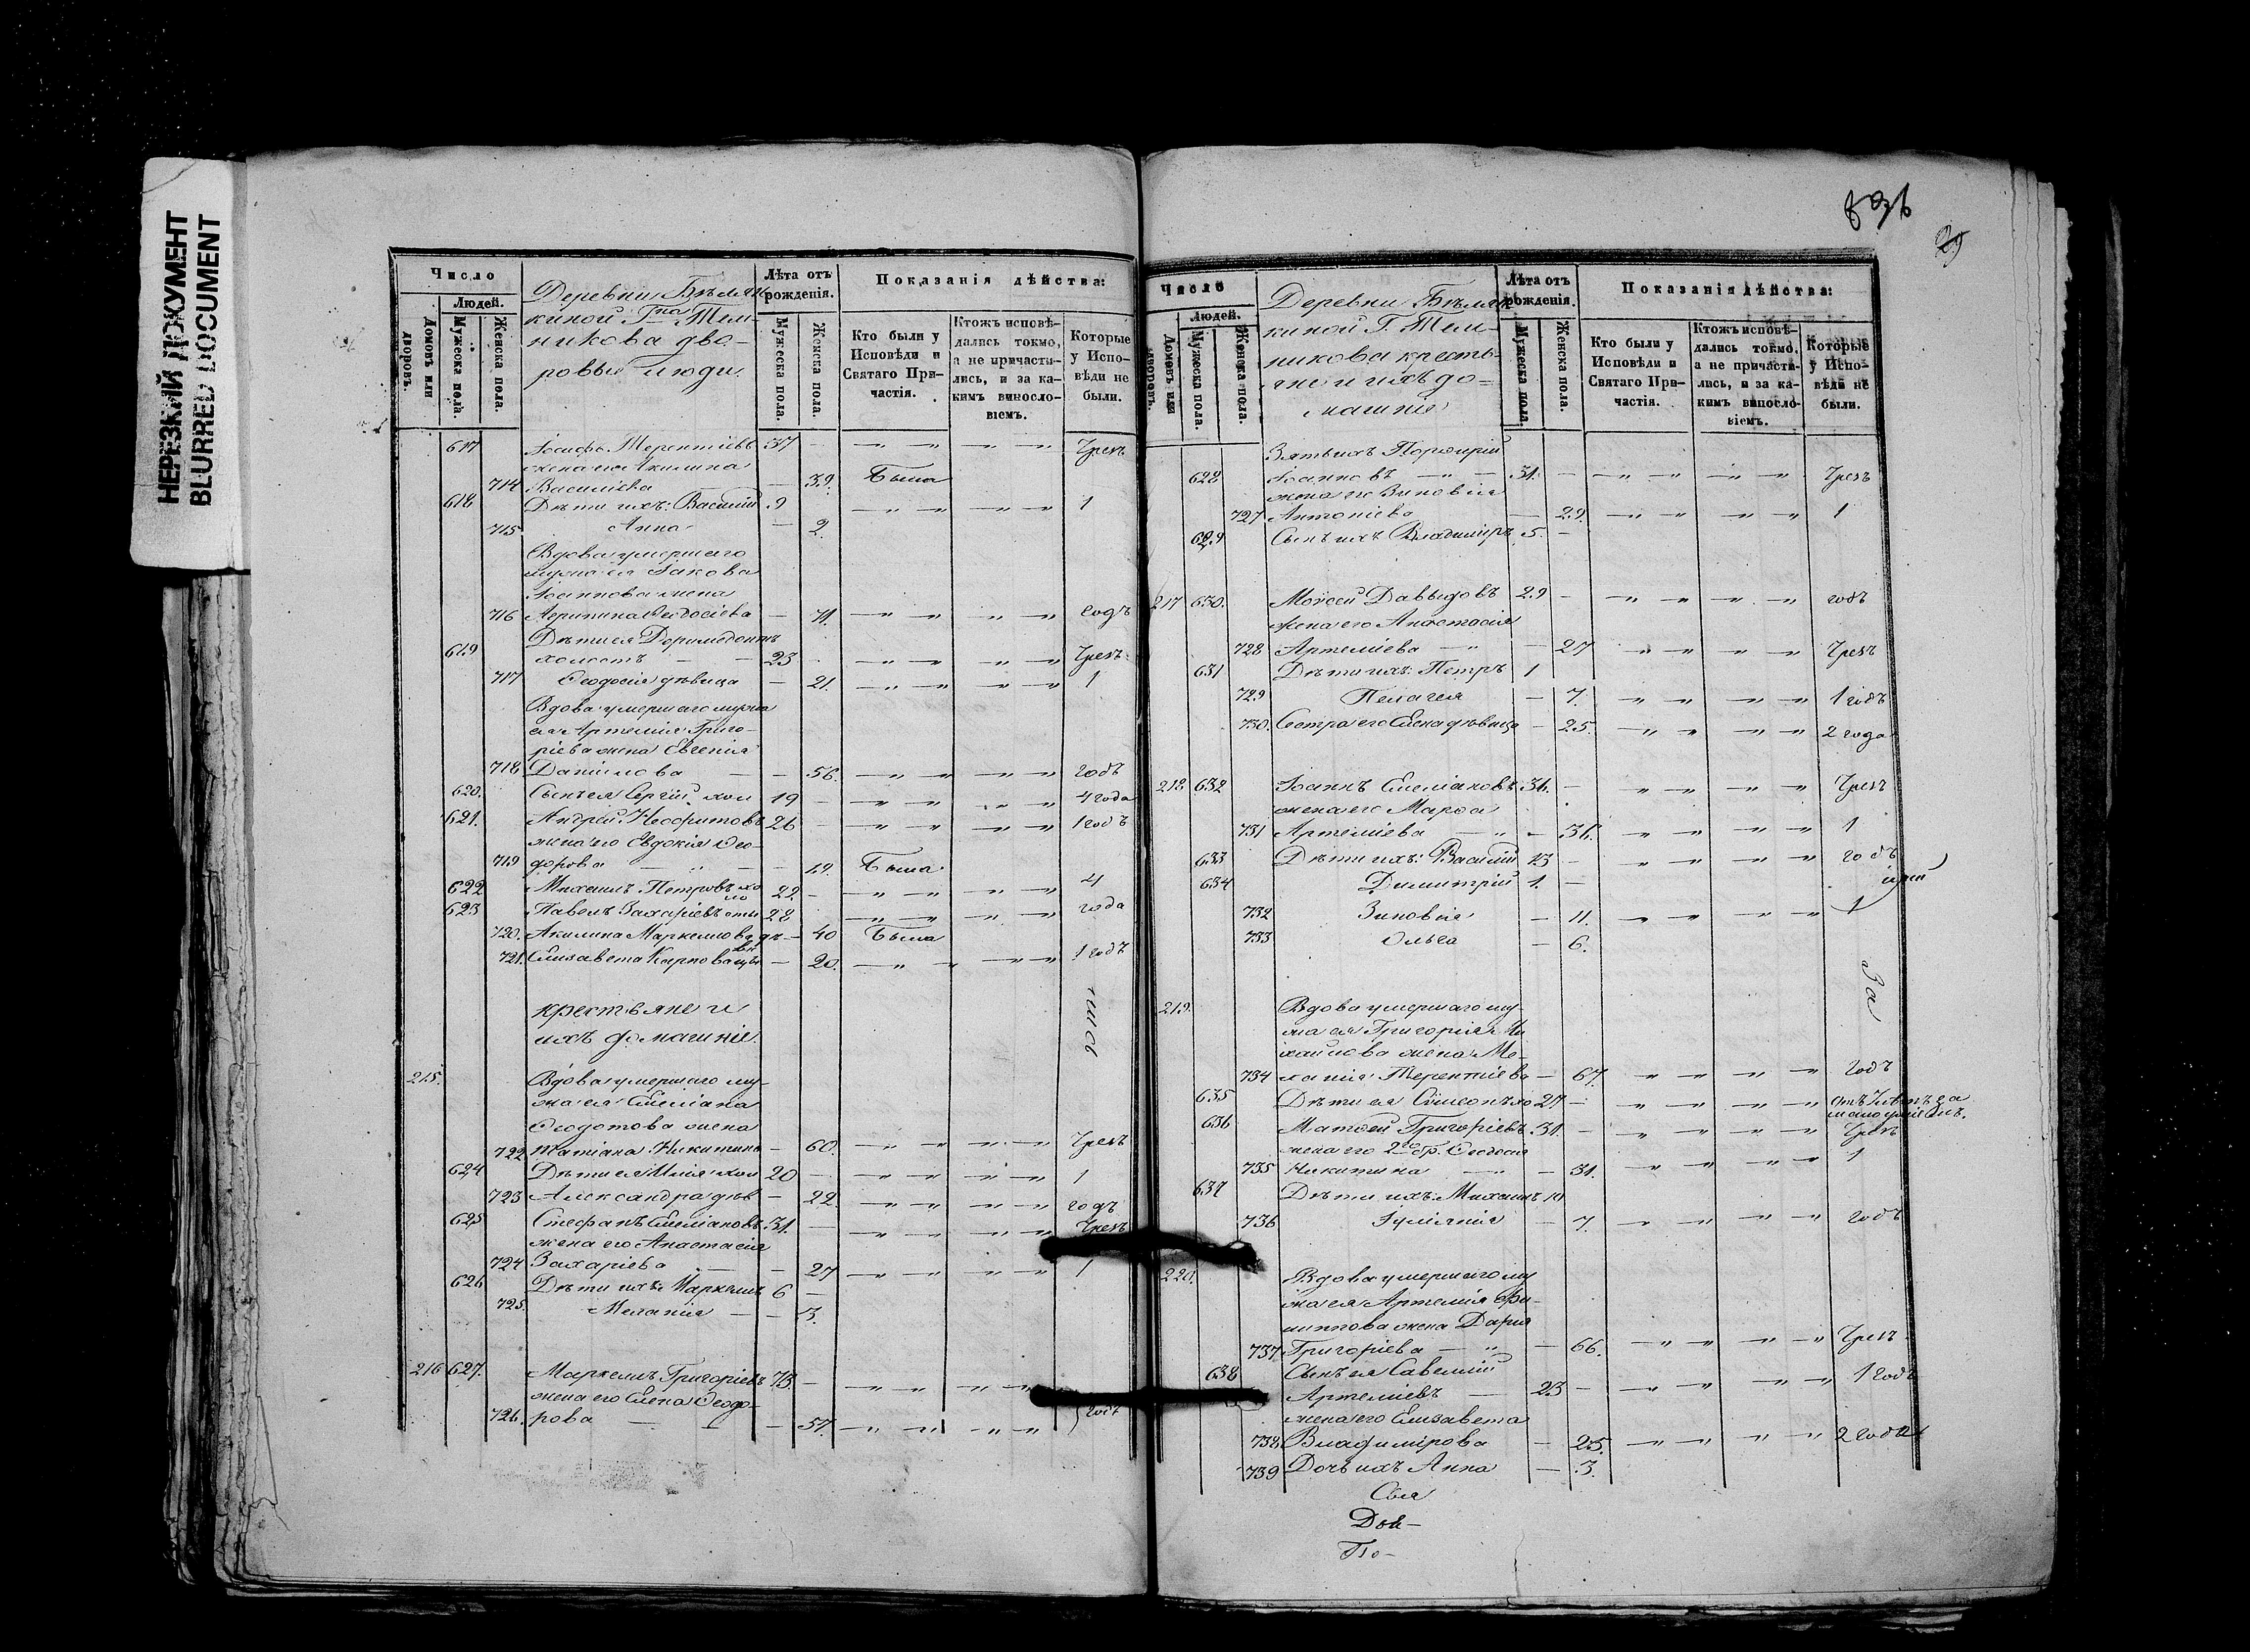 НЕРЕЗКИЙ ДОКУМЕНТ
BLURRED DOCUMENT
Число
Людей.
Домовъ или дворовъ.
Мужеска пола.
Женска пола.
Деревни Бѣлян-
киной Гна Мель-
никова дво-
ровыя люди
Лѣта отъ рожденія.
Мужеска пола.
Женска пола.
Показанія дѣйства:
Кто были у Исповѣди и Святаго При-частія.
Ктожъ исповѣ-дались токмо, а не причасти-лись, и за ка-кимъ винословіемъ.
Которые у Испо-вѣди не были.
617 Іосифъ Терентіевъ 37 Чрезъ
жена его Акилина
714 Василіева 39. Была
618 Дѣти ихъ: Василій 9 1
715. Анна 2.
Вдова умершаго
мужа ея Іакова
Іоаннова жена
716 Агрипина Ѳеодосіева 71. годъ
Дѣти ея Доримедонтъ
619 холостъ 23 Чрезъ
717 Ѳеодосія дѣвица 21. 1
Вдова умершаго мужа
ея Артемія Григо-
ріева жена Евгенія
718 Даніилова 56. годъ
620. Сынъ ея Сергій хол 19 4 года
621. Андрей Неофитовъ 26 1 годъ
жена его Евдокія Ѳео-
719 дорова 19. Была
622 Михаилъ Петровъ хо 22. 4
623 Павелъ Захаріевъ 28 года
720. Акилина Маркелова дѣ 40 Была
721. Елизавета Карпова 20. 1 годъ
крестьяне и
ихъ домашніе
215. Вдова умершаго му-
жа ея Емеліана
Ѳеодотова жена
722 Татіана Никитина 60. Чрезъ
624 Дѣти ея Илія хол 20 1
723 Александра дѣв 22. годъ
625 Стефанъ Емеліановъ 31. Чрезъ
жена его Анастасія
724 Захаріева 27 1
626 Дѣти ихъ: Маркеллъ 6
725. Меланія 3.
216 627. Маркеллъ Григоріевъ 73.
жена его Елена Ѳеодо-
726. рова 57. годъ
Число
Людей.
Домовъ или дворовъ.
Мужеска пола.
Женска пола.
Деревни Бѣлян-
киной Г. Мель-
никова кресть-
яне и ихъ до-
машніе
Лѣта отъ рожденія.
Мужеска пола.
Женска пола.
Показанія дѣйства:
Кто были у Исповѣди и Святаго При-частія.
Ктожъ исповѣ-дались токмо, а не причасти-лись, и за ка-кимъ винословіемъ.
Которые у Испо-вѣди не были.
Зять ихъ Порфирій
628 Іоанновъ 31. Чрезъ
жена его Зиновія
727 Антоніева 29. 1
629 Сынъ ихъ Владиміръ 5.
217 630. Моисей Давыдовъ 29 годъ
жена его Анастасія
728 Артеміева 27 Чрезъ
631 Дѣти ихъ: Петръ 1
729 Пелагея 7. 1 годъ
730. Сестра его Елена дѣвица 25. 2 года
218 632 Іоаннъ Емеліановъ 36. Чрезъ
жена его Марѳа
731 Артеміева 36. 1
633 Дѣти ихъ: Василій 13 годъ
634 Димитрій 1.
732 Зиновія 11. 1
733 Ольга 6.
219. Вдова умершаго му-
жа ея Григорія Ми
хаилова жена Ме-
734 ланія Терентіева 67. годъ
635 Дѣти ея Симеонъ хо 27
636 Матѳей Григоріевъ 31. Чрезъ
жена его 2го бр. Ѳеодосія
735 Никитина 31. 1
637 Дѣти ихъ: Михаилъ 10
736 Іуліанія 7. годъ
220. Вдова умершаго му
жа ея Артемія Фи-
липпова жена Дарія
737. Григоріева 66. Чрезъ
638 Сынъ ея Савелій
Артеміевъ 23 1 годъ
жена его Елизавета
738 Владимірова 25. 2 года
739 Дочь ихъ Анна 3.